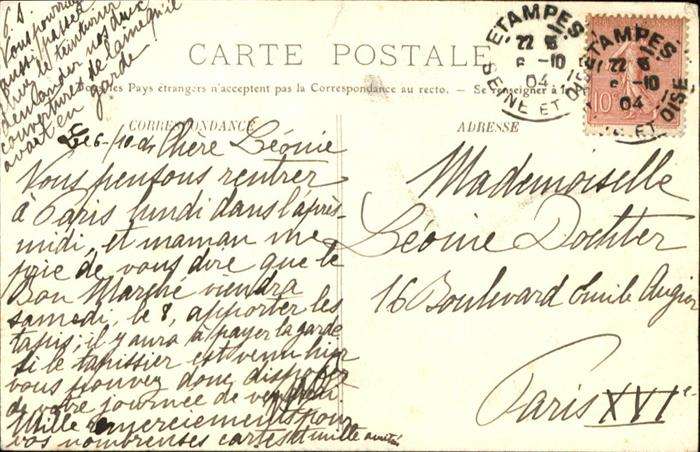 P.S.
Vous pourriez
aussi passer
chez le teinturier
demander nos deux
couvertures de laine qu'il
avait en garde
CARTE POSTALE
Pays étrangers n'acceptent pas la Correspondance au recto. — Se renseigner à la
CORRESPONDANCE
ADRESSE
ETAMPES
22 6
6 -10
04
SEINE ET OISE
ETAMPES
22 6
6 -10
04
SEINE ET OISE
10
Le 6-/10-04 Chère Léonie
Nous pensons rentrer
à Paris lundi dans l'après-
midi, et maman me
prie de vous dire que le
Bon Marché viendra
samedi, le 8, apporter les
tapis; il y aura à payer la garde
si le tapissier est venu hier
vous pouvez donc disposer
de votre journée de vendredi
Mille remerciements pour
vos nombreuses cartes et mille amitiés
Mademoiselle
Léonie Dochter
16 Boulevard Emile Augier
Paris XVIe